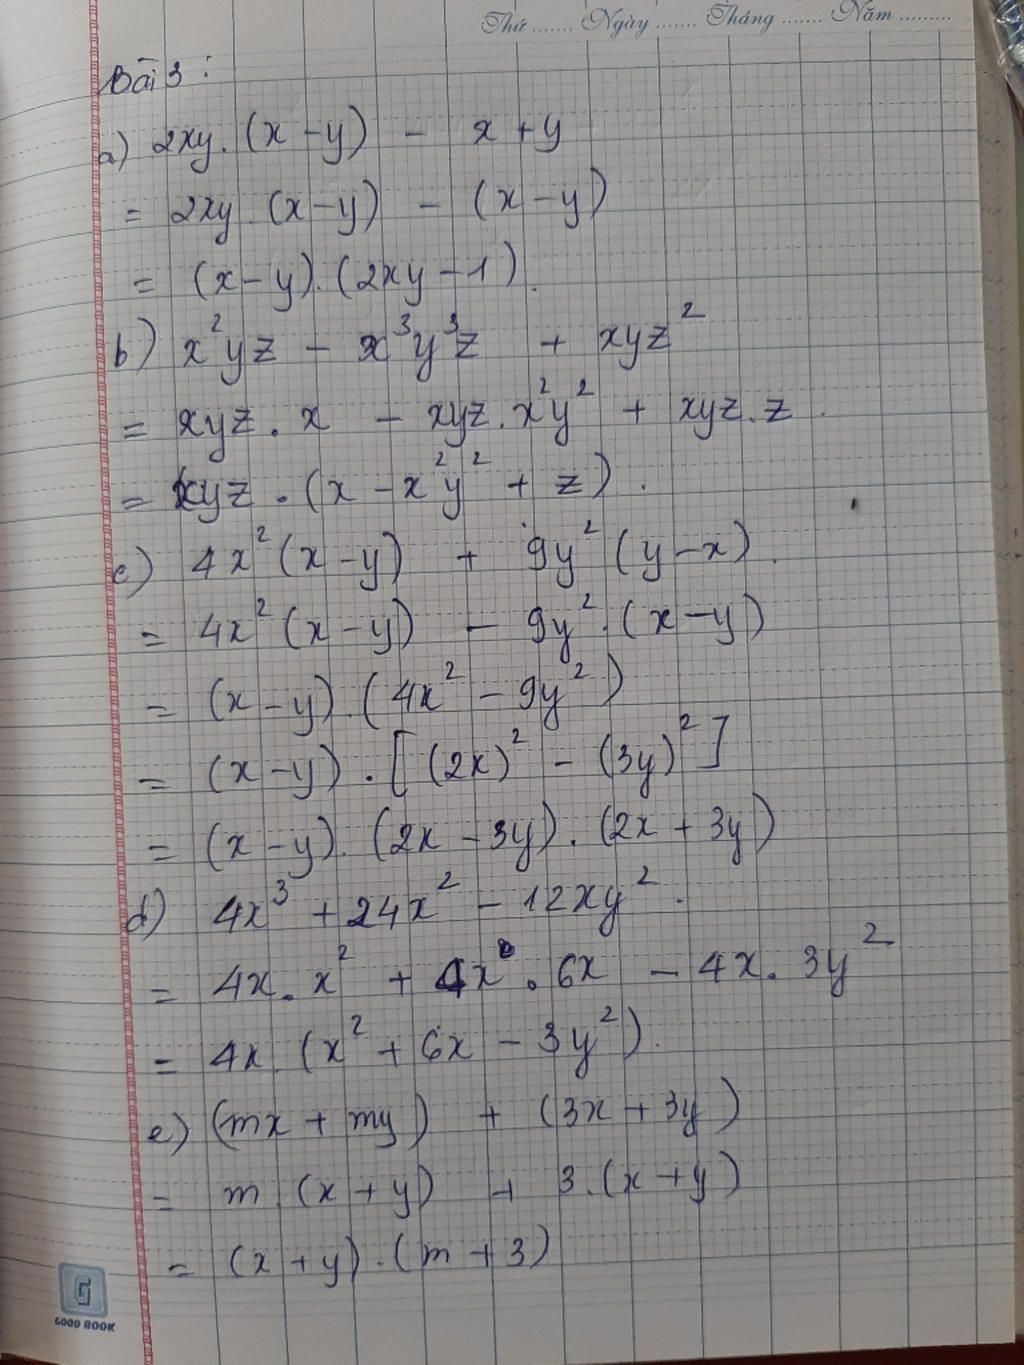 Thứ ....... Ngày ....... Tháng ....... Năm .........
Bài 3 :
a) 2xy. (x - y) - x + y
= 2xy. (x - y) - (x - y)
= (x - y). (2xy - 1).
b) x²yz - x³y³z + xyz²
= xyz . x - xyz. x²y² + xyz. z .
= xyz . (x - x²y² + z) .
c) 4x² (x - y) + 9y² (y - x) .
= 4x² (x - y) - 9y² . (x - y)
= (x - y) . (4x² - 9y²)
= (x - y) . [ (2x)² - (3y)² ]
= (x - y). (2x - 3y) . (2x + 3y)
d) 4x³ + 24x² - 12xy² .
= 4x . x² + 4x . 6x - 4x . 3y²
= 4x . (x² + 6x - 3y²) .
e) (mx + my) + (3x + 3y)
= m (x + y) + 3 . (x + y)
= (x + y) . (m + 3)
G
GOOD BOOK